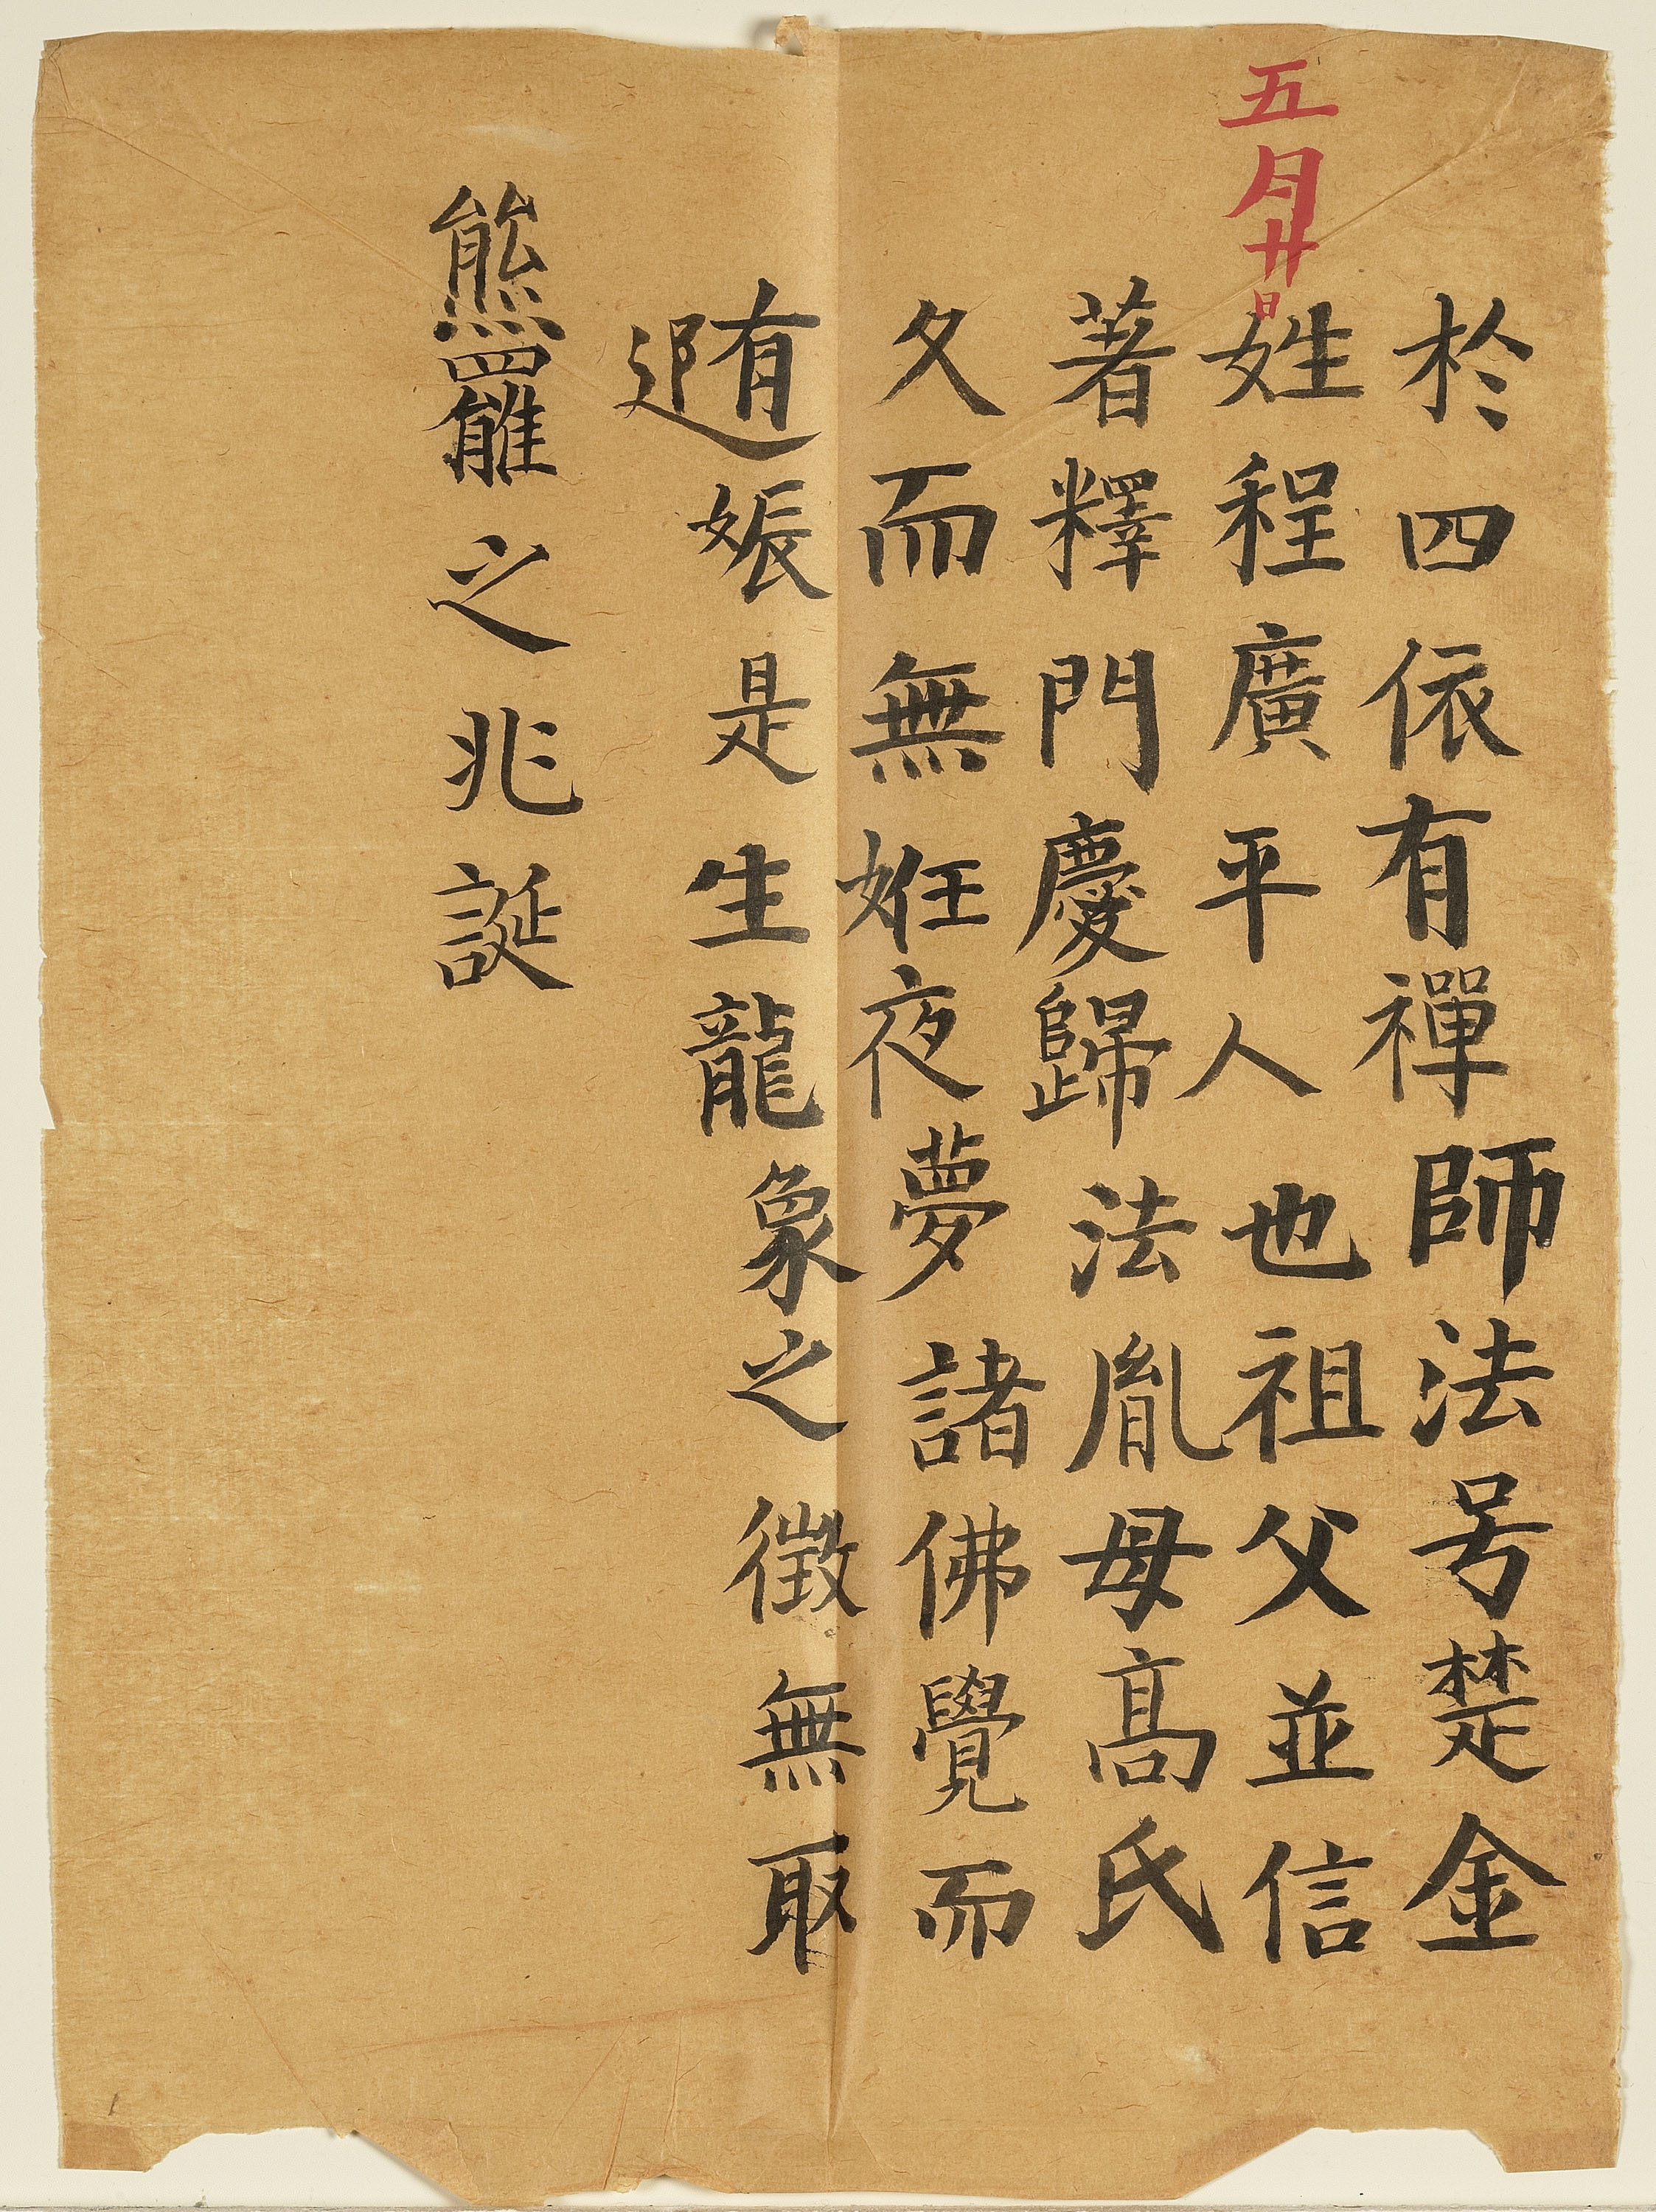 五月廿日
於四依有禪師法号楚金
姓程廣平人也祖父並信
著釋門慶歸法胤母高氏
久而無姙夜夢諸佛覺而
有娠是生龍象之徵無取
熊羆之兆誕